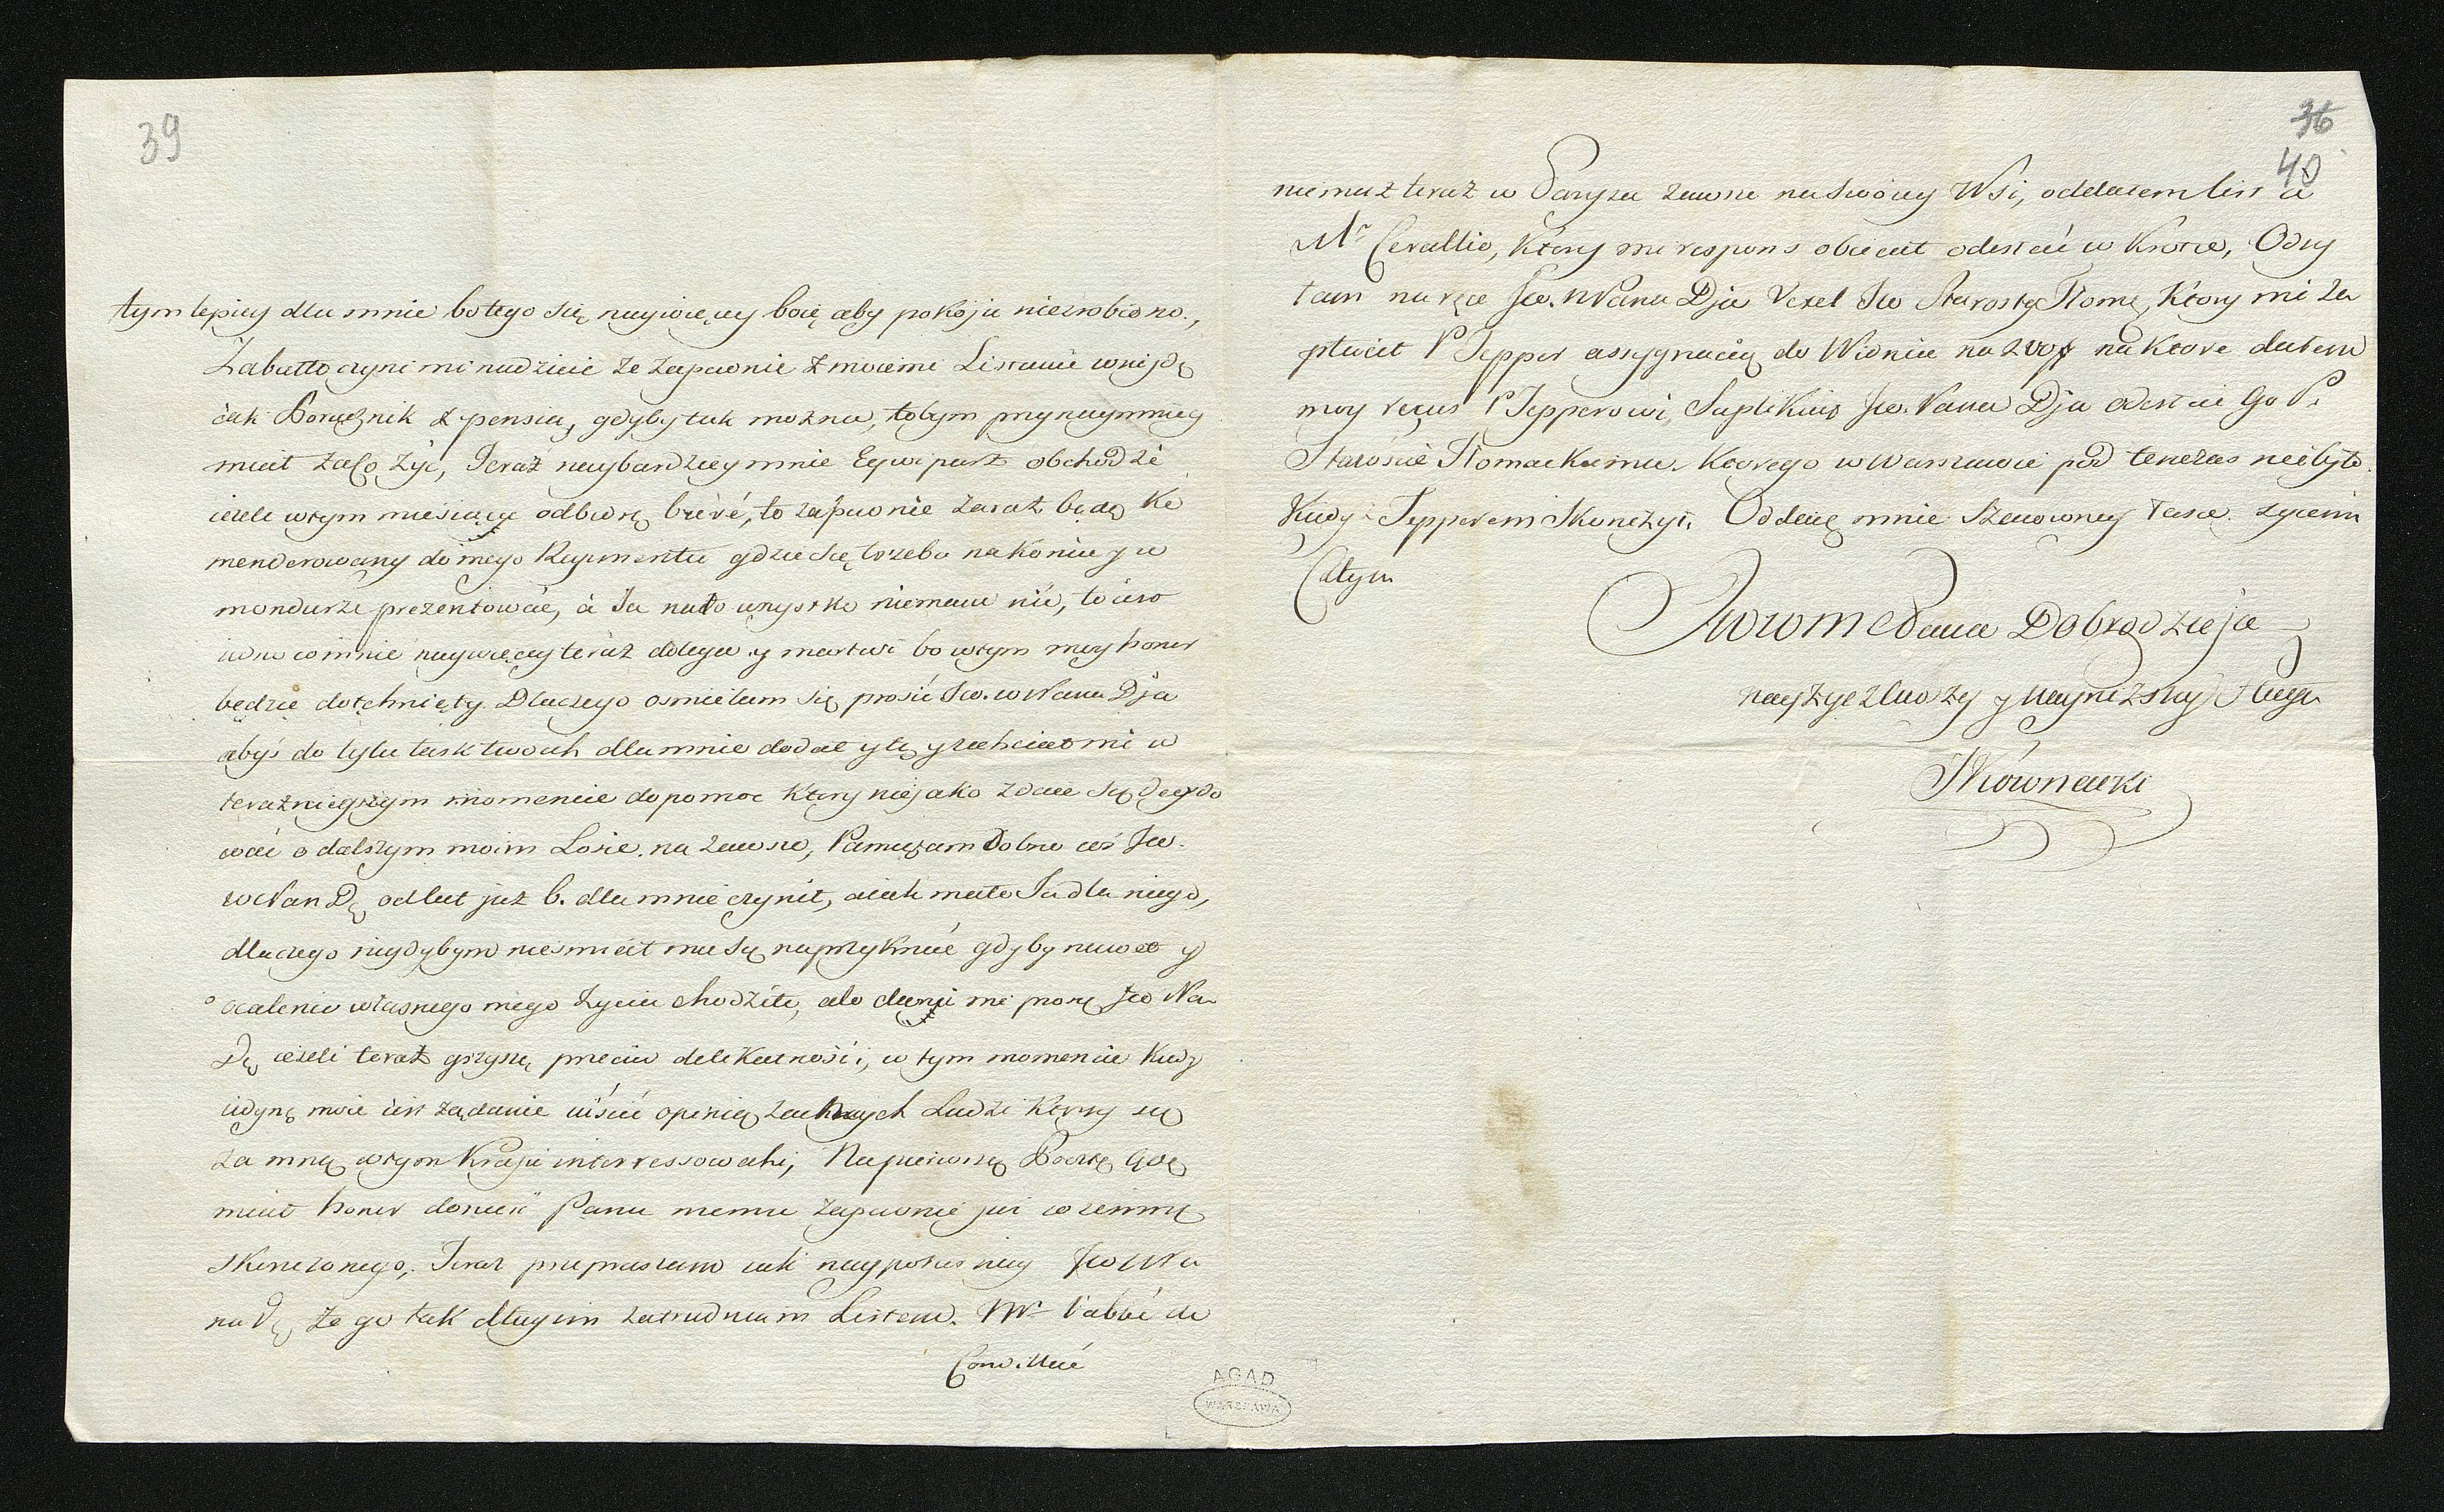 39
tym lepiey dla mnie bo tego się naywięcey boię aby pokoju niezrobiono,
Zabiełło czyni mi nadzieie że zapewnie z moiemi Listami wniydę
iak Porucznik z pensią, gdyby tak można, tobym przynaymniey
miał za co żyć, Teraz naybardziey mnie Eqwipaż obchodzi
ieżeli w tym miesiącu odbiorę brévé, to zapewnie zaraz będę ko
menderowany do mego Regimentu gdzie się trzeba na koniu y w
mondurze prezentować, à Ja na to wszystko niemam nic, to iest
iedno co mnie naywięcey teraz dolega y martwi bo w tym moy honor
będzie dotchnięty. Dlaczego osmielam się prosić Jw. W Pana Dja
abyś do tylu łask twoich dla mnie dodał y tę y zechciał mi w
teraznieyszym momencie dopomoc ktory niejako zdaie się decydo
wać o dalszym moim Losie na zawsze, Pamiętam dobrze coś Jw.
W Pan D. od lat już 6. dla mnie czynił, a iak mało Ja dla niego,
dlaczego nigdybym nieśmiał mu się naprzykrzać gdyby nawet y
o ocalenie własnego mego życia chodziło, ale daruj mi proszę Jw Pa
D. ieżeli teraz grzeszę przeciw delikatności, w tym momencie kiedy
iedyne moie iest żądanie uiścić opinią zacnych Ludzi ktorzy się
za mną w tym Kraju interressowali, Na pierwszą Pocztę będę
miał honor donieść Panu memu zapewnie już co zemną
skończonego, Teraz przepraszam iak naypokorniey Jw W Pa
na D. że go tak długim zatrudniam Listem. Mr l'abbé de
36
40
niemasz teraz w Paryżu zawsze na swoiey Wsi, oddałem list a
Mr Cerallio, który mi respons obiecał odesłać w krotce, Odsy
łam na ręce Jw. W Pana Dja Vexel Jw Starostę Tłoma. Ktory mi za
płacił P Tepper assygnacią do Wiednia na na ktore dałem
moy reçus P Tepperowi, Suplikuię Jw. Pana Dja odesłać go P.
Staroście Tłomackiemu. Ktorego w Warszawie pod tenczas niebyło
Kiedy z Tepperem skonczył. Oddaię mnie szanowney łasce z życiem
Całym
Jw W M Pana Dobrodzieja
nayżyczliwszy y nayniższy Sługa